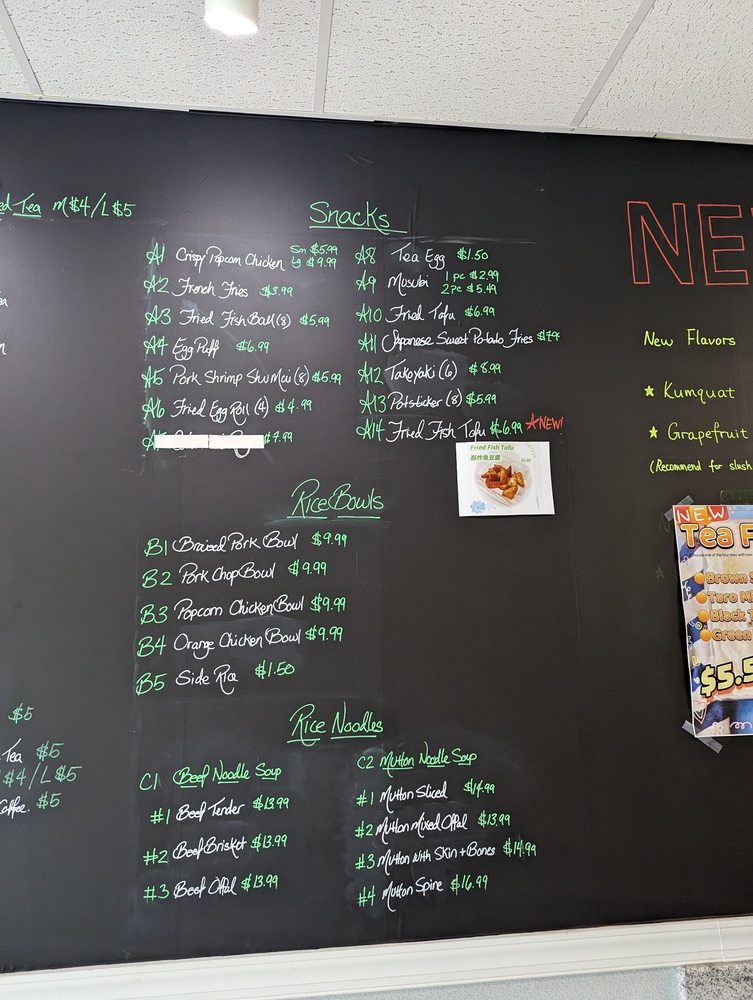 ed Tea M$4/L$5
$5
Tea $5
$4/L$5
Coffee. $5
Snacks
A1 Crispy Popcorn Chicken Sm $5.99
Lg $9.99
A2 French Fries $3.99
A3 Fried Fish Ball (8) $5.99
A4 Egg Puff $6.99
A5 Pork Shrimp Shu Mai (8) $5.99
A6 Fried Egg Roll (4) $4.99
$7.99
A8 Tea Egg $1.50
A9 Musubi 1 pc $2.99
2 pc $5.49
A10 Fried Tofu $6.99
A11 Japanese Sweet Potato Fries
A12 Takoyaki (6) $8.99
A13 Potsticker (8) $5.99
A14 Fried Fish Tofu $6.99 ☆NEW!
Fried Fish Tofu
酥炸魚豆腐
Rice Bowls
B1 Braised Pork Bowl $9.99
B2 Pork Chop Bowl $9.99
B3 Popcorn Chicken Bowl $9.99
B4 Orange Chicken Bowl $9.99
B5 Side Rice $1.50
Rice Noodles
C1 Beef Noodle Soup
#1 Beef Tender $13.99
#2 Beef Brisket $13.99
#3 Beef Offal $13.99
C2 Mutton Noodle Soup
#1 Mutton Sliced $14.99
#2 Mutton Mixed Offal $13.99
#3 Mutton with Skin + Bones $14.99
#4 Mutton Spine $16.99
NE
New Flavors
★ Kumquat
★ Grapefruit
(Recommend for slush
NEW
Tea F
Brown
Taro M
Black T
Green
$5.5